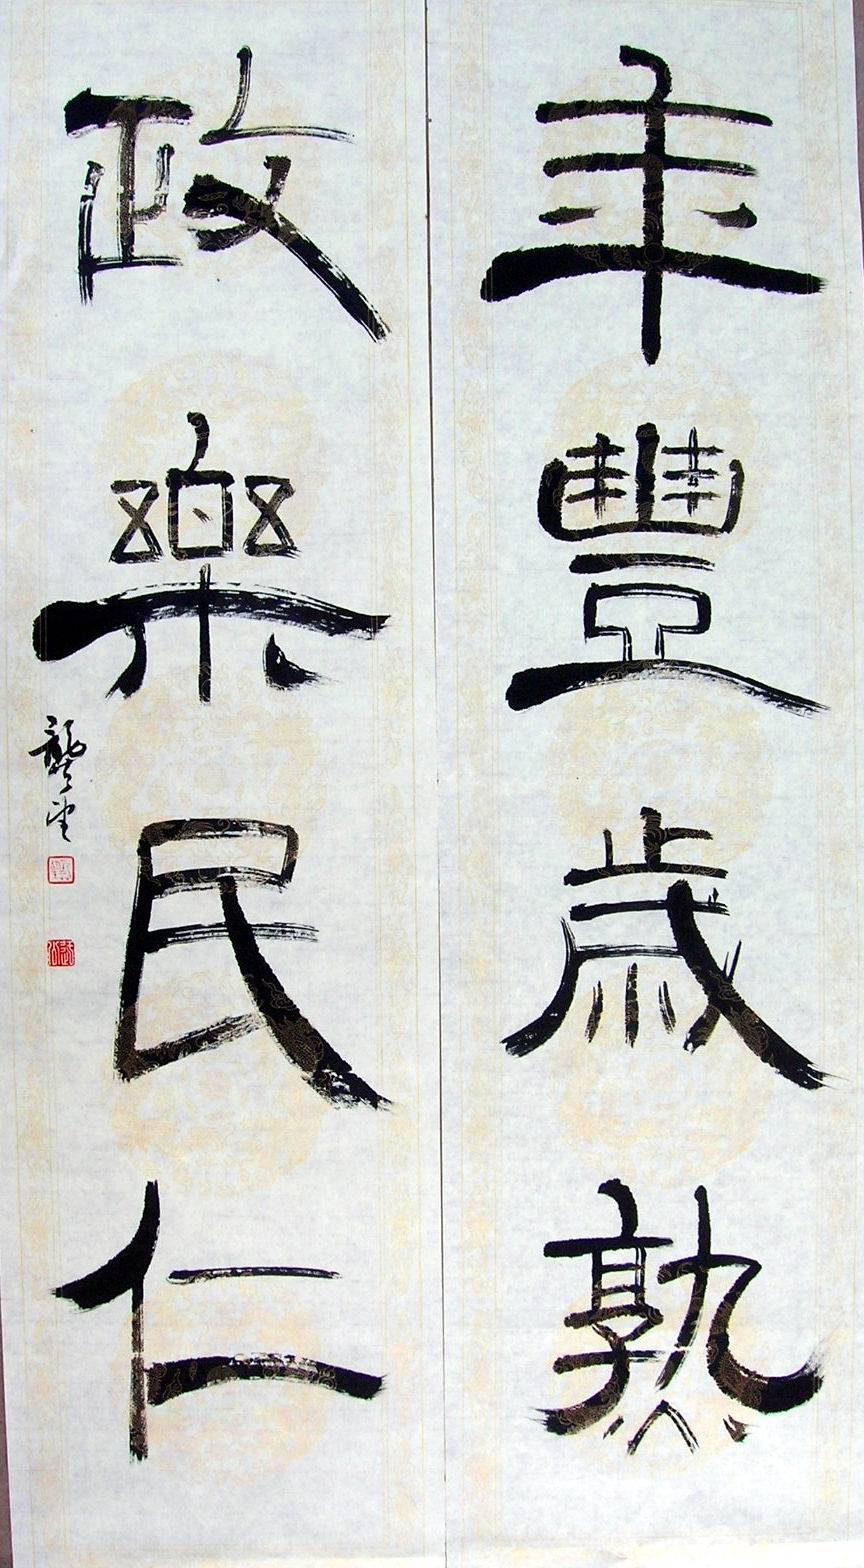 年豐歲熟
政樂民仁
龔望